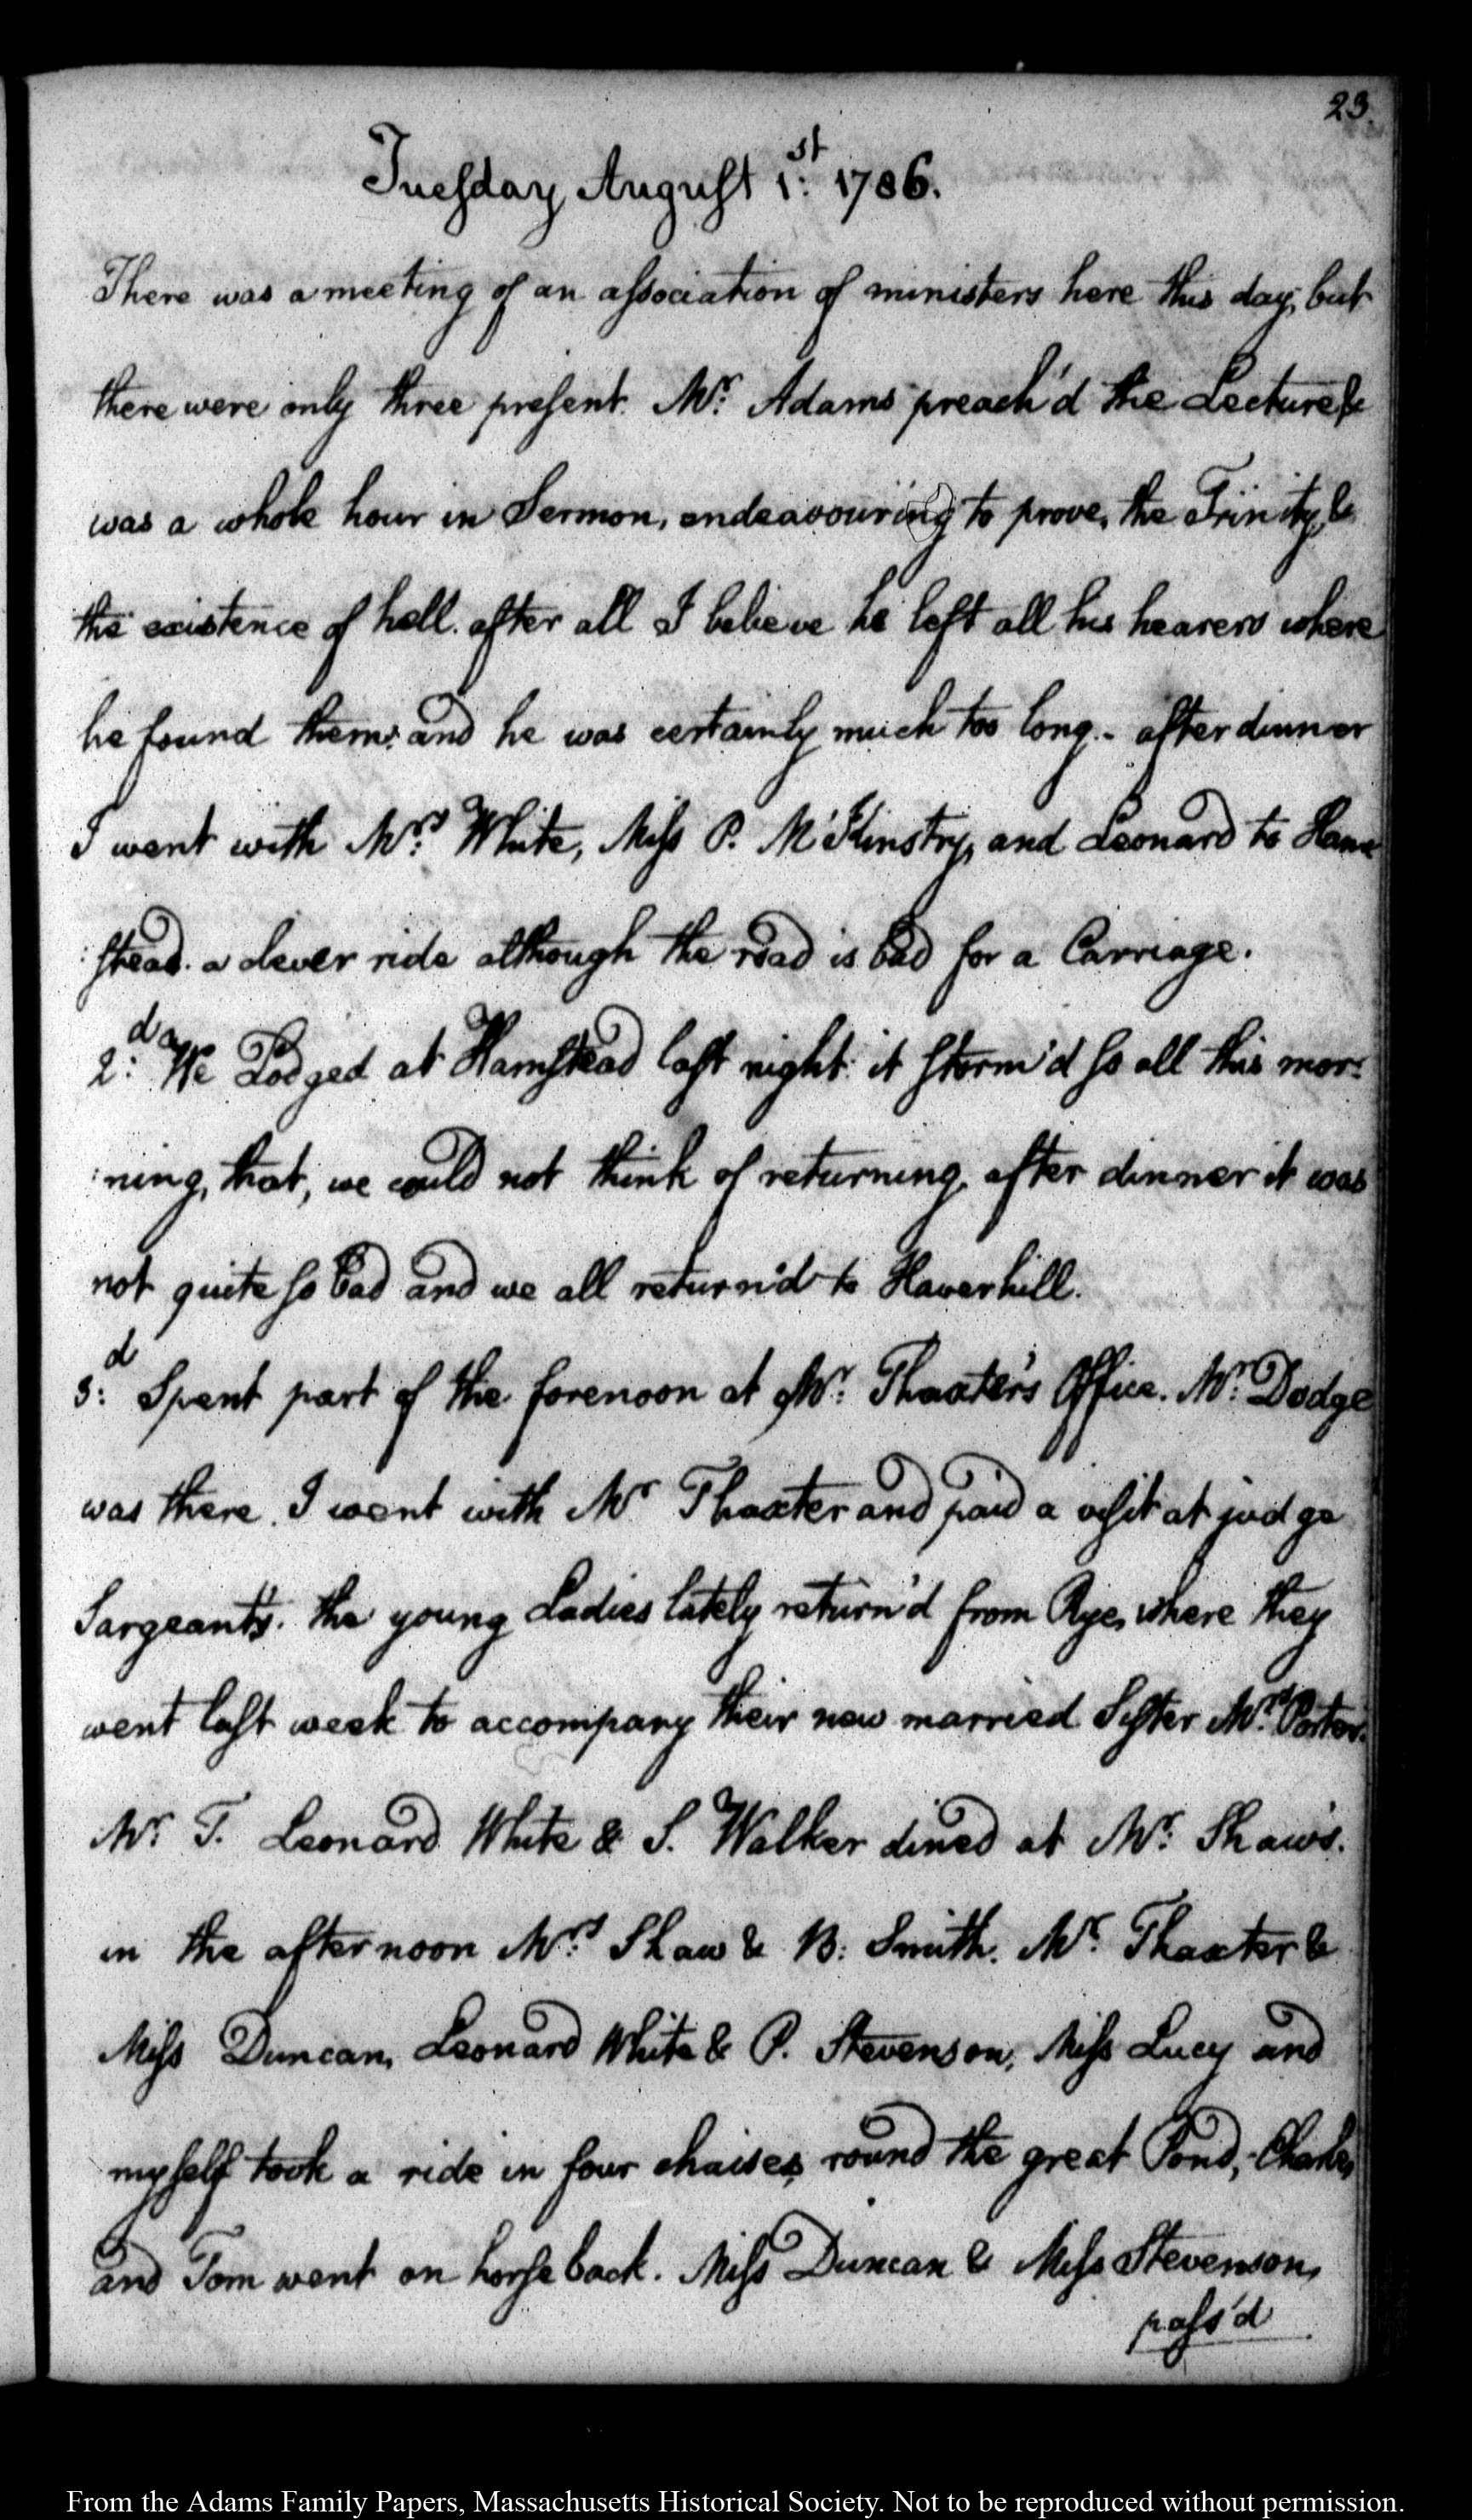 23.
Tuesday August 1:st 1786.
There was a meeting of an association of ministers here this day, but
there were only three present. Mr: Adams preach'd the Lecture &
was a whole hour in Sermon, endeavouring to prove, the Trinity, &
the existence of hell. after all I believe he left all his hearers where
he found them; and he was certainly much too long.- after dinner
I went with Mrs: White, Miss P. M'Kinstry, and Leonard to Ham
:stead. a clever ride although the road is bad for a Carriage.
2:d We Lodged at Hamstead last night: it storm'd so all this mor:
:ning, that, we could not think of returning, after dinner it was
not quite so bad and we all return'd to Haverhill.
3:d Spent part of the forenoon at Mr: Thaxter's Office. Mr: Dodge
was there. I went with Mr Thaxter and paid a visit at judge
Sargeant's. the young Ladies lately return'd from Rye, where they
went last week to accompany their new married Sister Mrs: Porter.
Mr T. Leonard White & S. Walker dined at Mr: Shaw's.
in the afternoon Mrs: Shaw & B: Smith. Mr: Thaxter &
Miss Duncan, Leonard White & P. Stevenson, Miss Lucy and
myself took a ride in four chaises, round the great Pond,- Charles,
and Tom went on horse back. Miss Duncan & Miss Stevenson,
pass'd
From the Adams Family Papers, Massachusetts Historical Society. Not to be reproduced without permission.